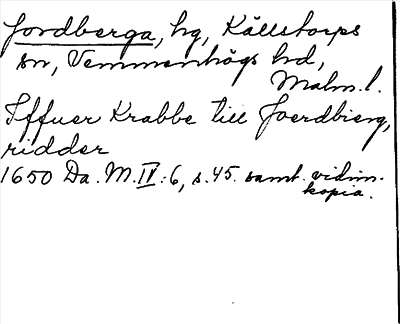 Jordberga, hg, Källstorps
sn, Vemmenhögs hd,
Malm. l.
Iffuer Krabbe till Joerdbierg,
ridder
1650 Da. M. IV: 6, s. 45. samt. vidim.
kopia.